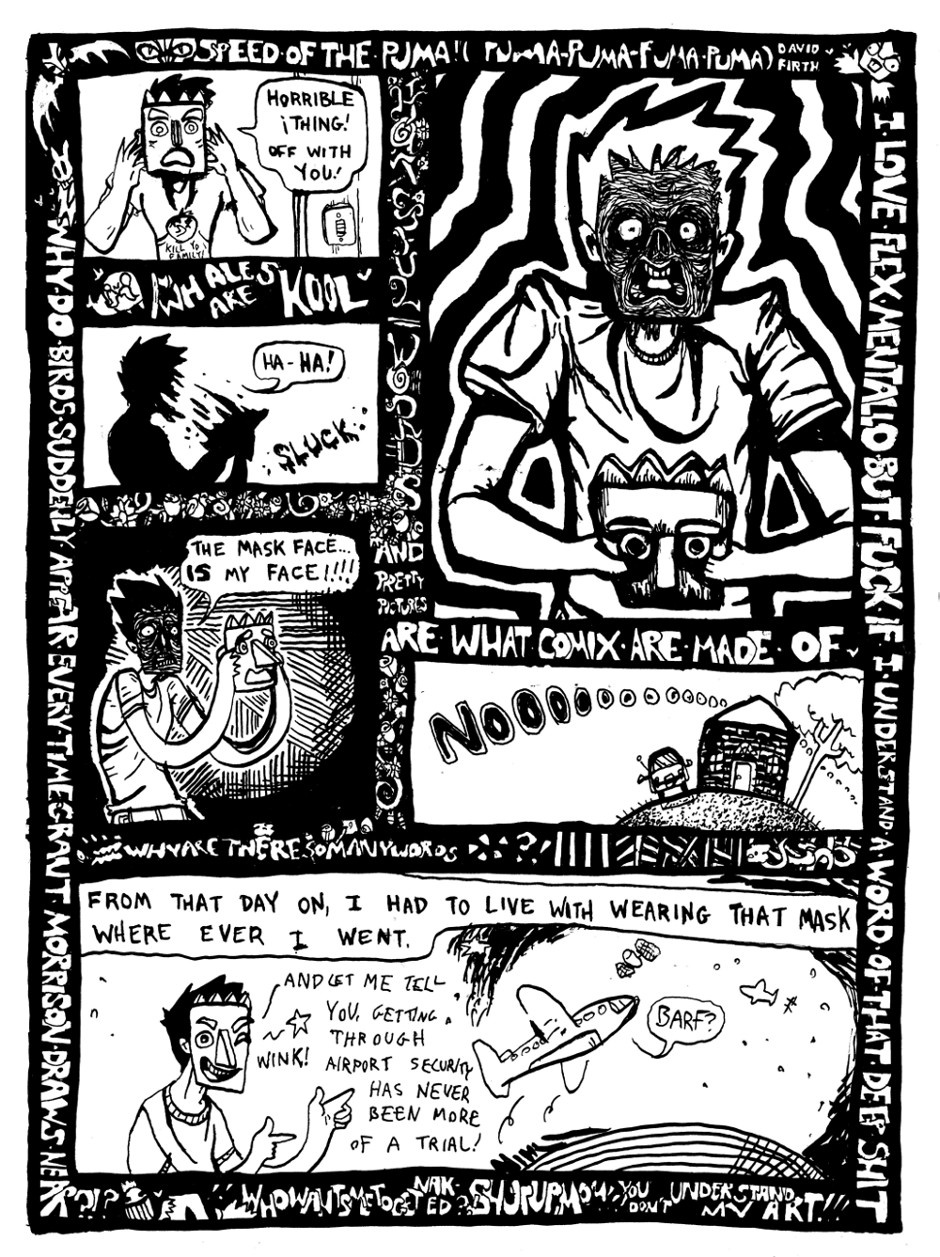 SPEED·OF THE·PUMA!( PUMA-PUMA-PUMA·PUMA)
DAVID
FIRTH
HORRIBLE
¡THING!
OFF WITH
YOU!
KILL YO
FAMILY!
WHALES
ARE
KOOL
HA-HA!
SLUCK
THE MASK FACE...
IS MY FACE!!!!
WORDS
AND
PRETTY
PICTURES
ARE·WHAT COMIX·ARE·MADE·OF
NOOOooooooooooo
WHY ARE THERE SO MANY WORDS
*·*?
FROM THAT DAY ON, I HAD TO LIVE WITH WEARING THAT MASK
WHERE EVER I WENT.
AND LET ME TELL
YOU, GETTING
THROUGH
AIRPORT SECURITY
HAS NEVER
BEEN MORE
OF A TRIAL!
WINK!
BARF?
WHY DO·BIRDS·SUDDEILY APPEAR EVERY TIME GRANT·MORRISON·DRAWS·NEK
I·LOVE·FLEX·MENTALLO·BUT·FUCK IF·I·UNDERSTAND·A·WORD·OF·THAT·DEEP·SHIT
?!?
WHO WANTS ME TO GET ED?
NAK
SHUTUP, MOM
YOU
DON'T
UNDERSTAND
MY ART!!!